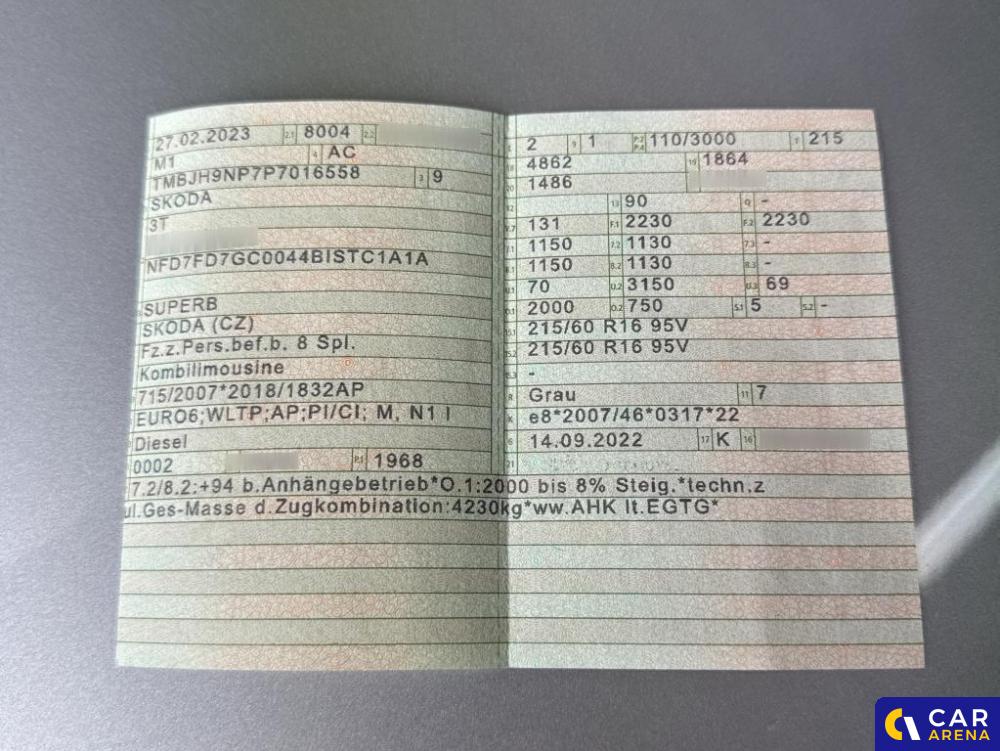 27.02.2023 2.1 8004 2.2
M1 4 AC
TMBJH9NP7P7016558 3 9
SKODA
3T
NFD7FD7GC0044BISTC1A1A
SUPERB
SKODA (CZ)
Fz.z.Pers.bef.b. 8 Spl.
Kombilimousine
715/2007*2018/1832AP
EURO6;WLTP;AP;PI/CI; M, N1 I
Diesel
0002 P.1 1968
2 9 1 P.2 P.4 110/3000 T 215
4862 19 1864
20 1486
12 13 90 Q -
V.7 131 F.1 2230 F.2 2230
7.1 1150 7.2 1130 7.3 -
8.1 1150 8.2 1130 8.3 -
U.1 70 U.2 3150 U.3 69
O.1 2000 O.2 750 S.1 5 S.2 -
15.1 215/60 R16 95V
15.2 215/60 R16 95V
15.3 -
R Grau 11 7
K e8*2007/46*0317*22
6 14.09.2022 17 K 16
21
7.2/8.2:+94 b.Anhängebetrieb*O.1:2000 bis 8% Steig.*techn.z
ul.Ges-Masse d.Zugkombination:4230kg*ww.AHK lt.EGTG*
CAR
ARENA